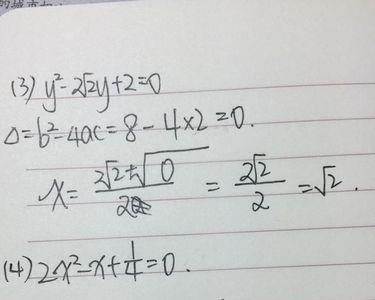 的城市
(3) y²-2√2y+2=0
△=b²-4ac=8-4×2=0.
x=(2√2±√0)/2=2√2/2=√2.
(4) 2x²-x+1/4=0.